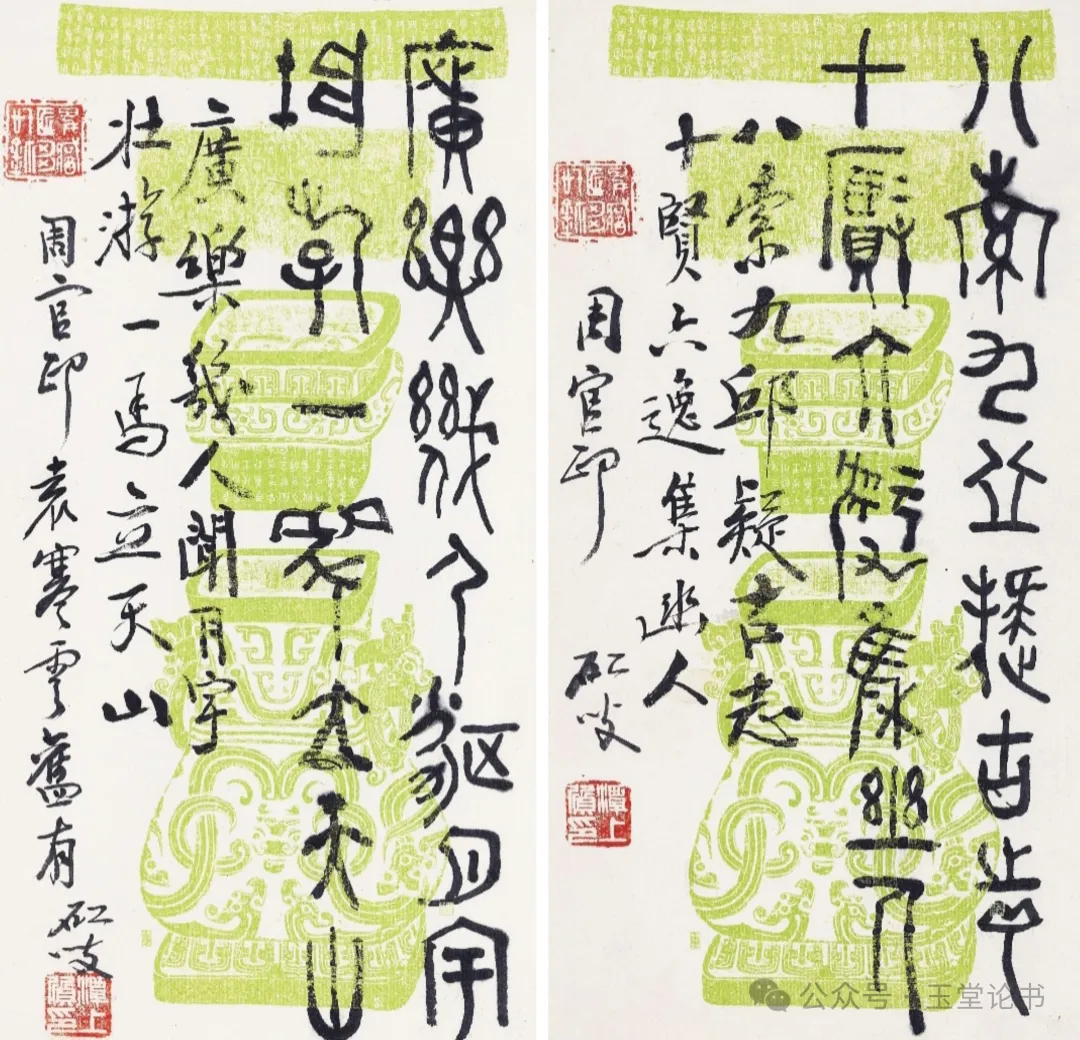 八索九丘疑古志
十賢六逸集幽人
八索九邱疑古志
十賢六逸集幽人
周官印
矼叟
廣樂幾人聞月宇
壯游一馬立天山
廣樂幾人聞月宇
壯游一馬立天山
周官印 袁寒雲舊有
矼叟
公众号·玉堂论书